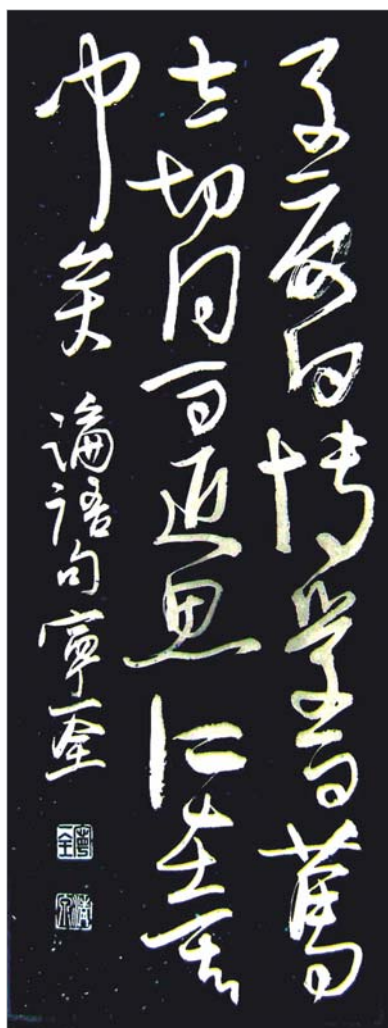 子夏曰博学而篤
志切问而近思仁在其
中矣
論語句寧奎